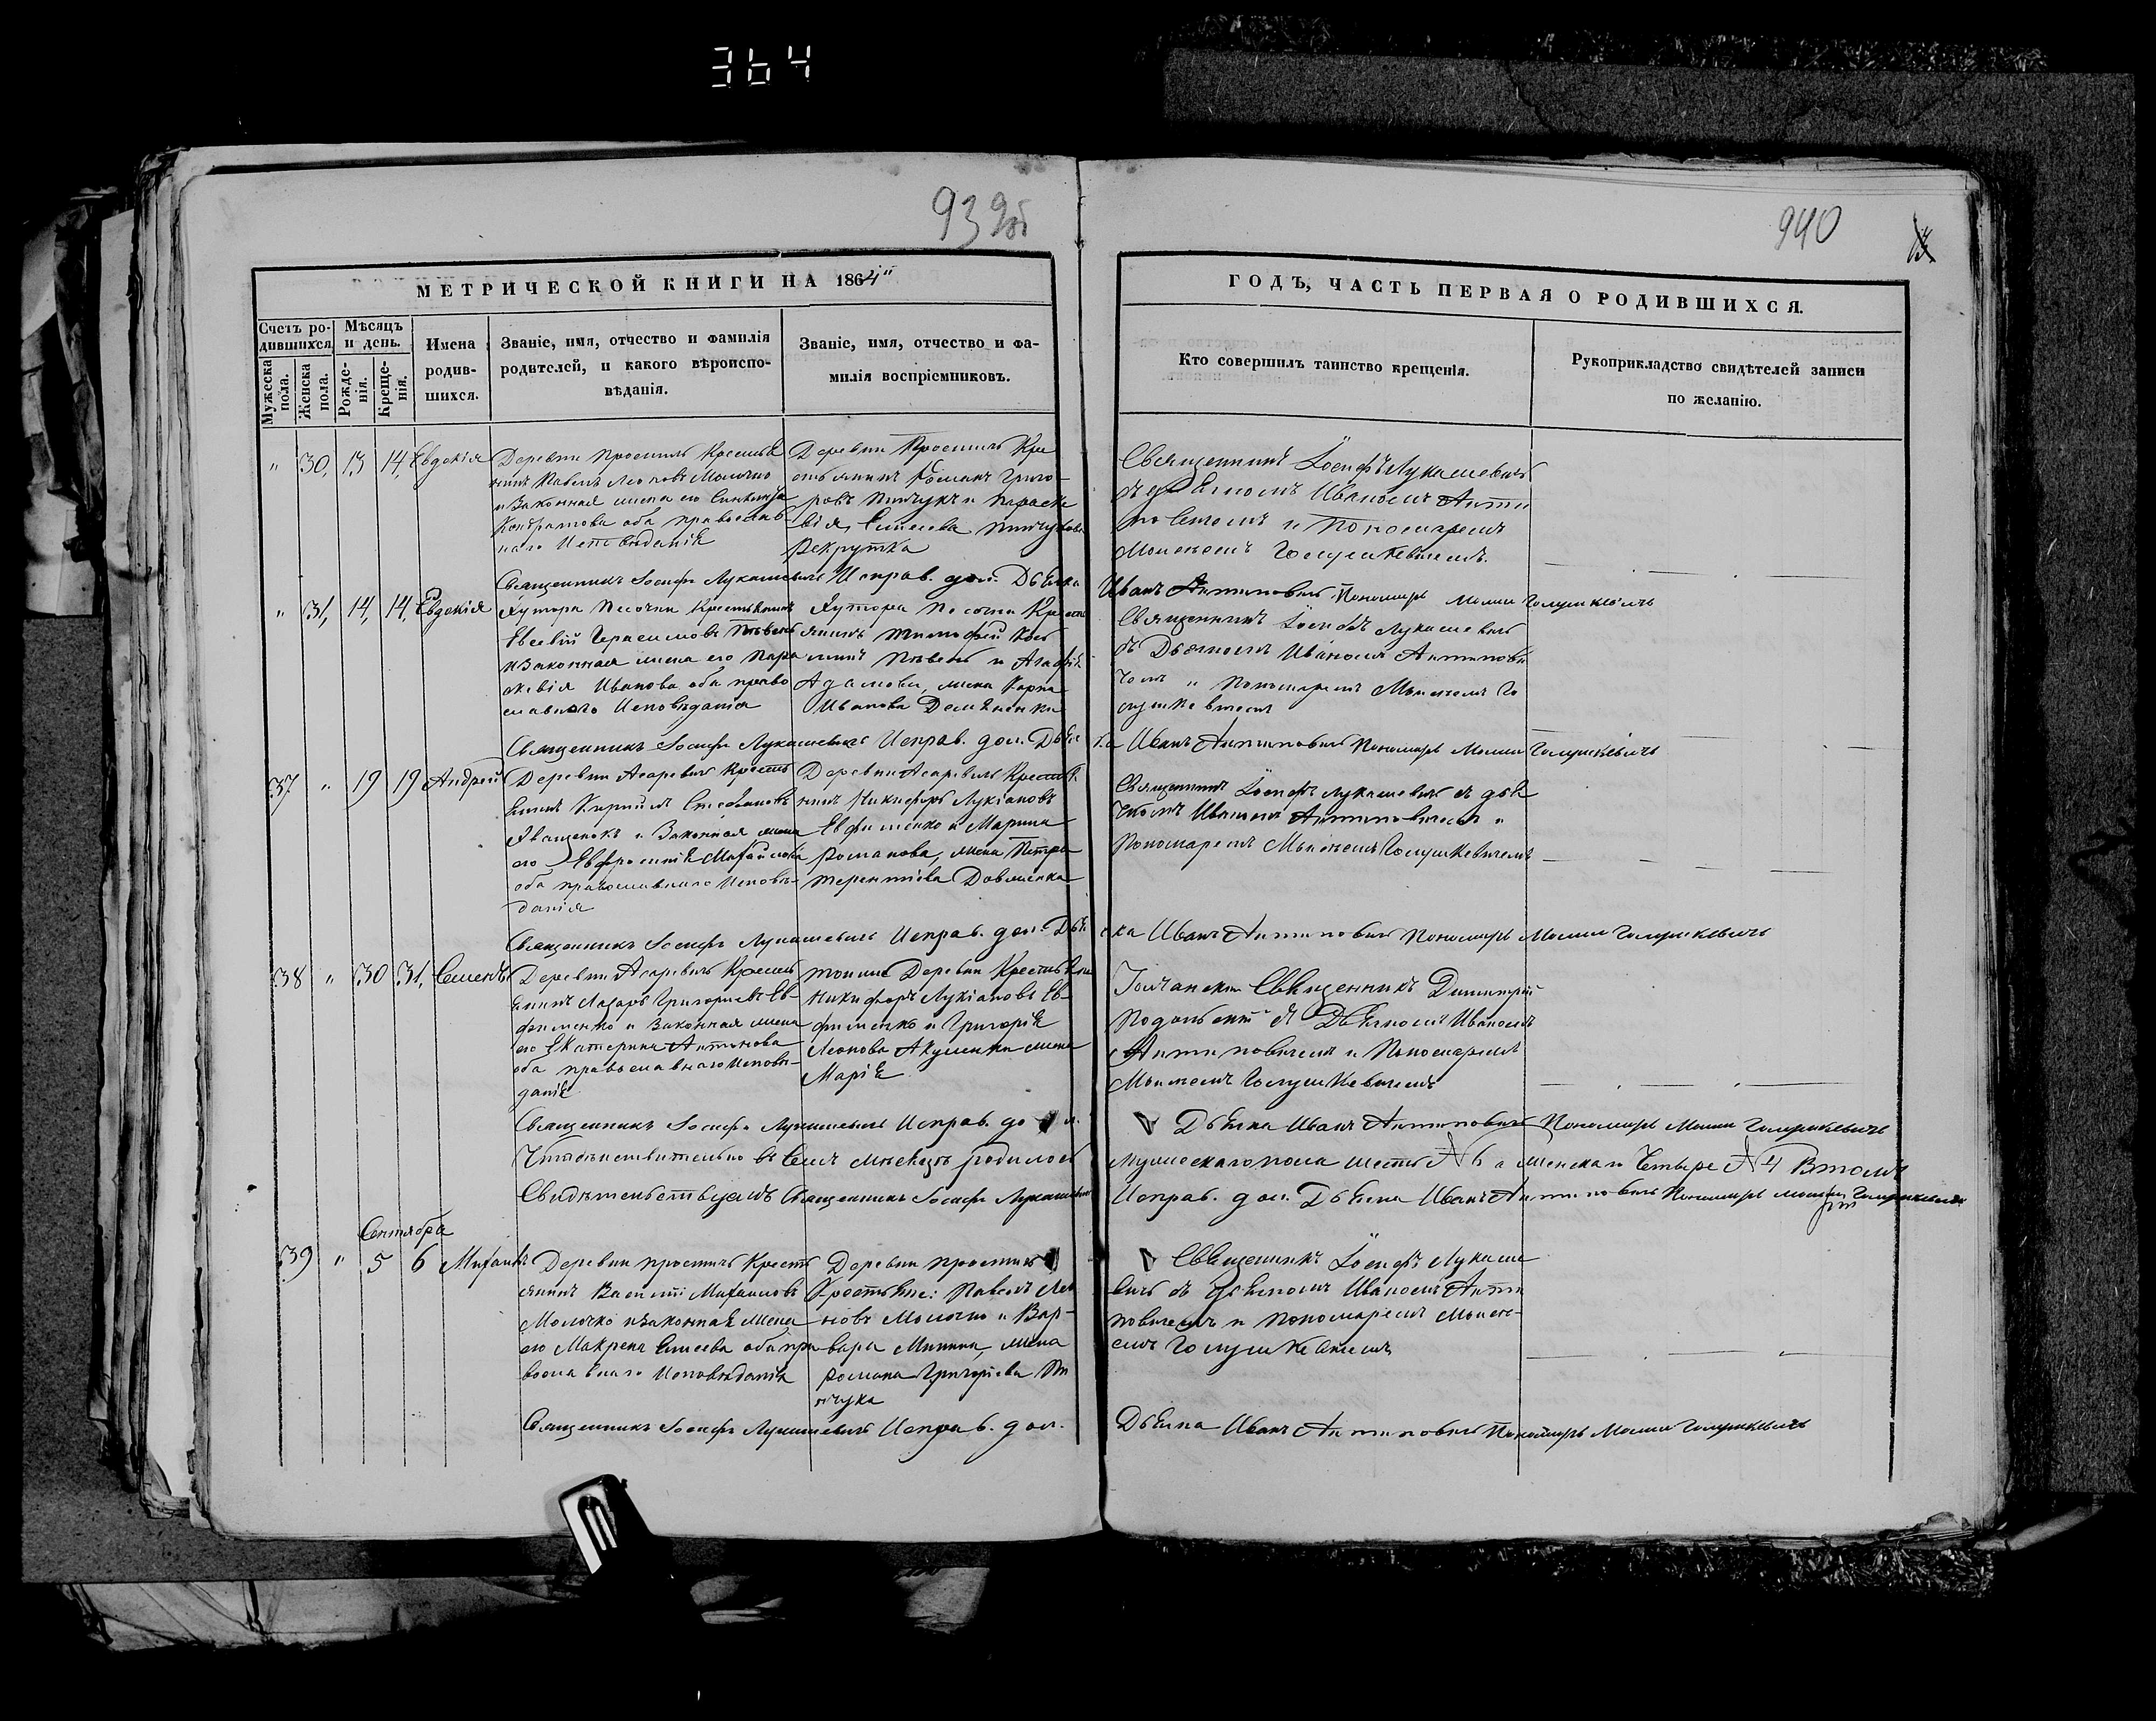 364
939об
940
МЕТРИЧЕСКОЙ КНИГИ НА 1864
ГОДЪ, ЧАСТЬ ПЕРВАЯ О РОДИВШИХСЯ.
Счетъ ро-
дившихся.
Мужеска
пола.
Женска
пола.
Мѣсяцъ
и день.
Рожде-
нія.
Креще-
нія.
Имена
родив-
шихся.
Званіе, имя, отчество и фамилія
родителей, и какого вѣроиспо-
вѣданія.
Званіе, имя, отчество и фа-
милія воспріемниковъ.
Кто совершилъ таинство крещенія.
Рукоприкладство свидѣтелей записи
по желанію.
" 30, 13 14, Евдокія
Деревни Простичъ Крестья
нинъ Павелъ Леоновъ Молочко
и Законная жена его
Кондратова оба православ
наго Исповѣданія
Деревни Простичъ Кре
стьянинъ Романъ Григо
ровъ Пинчукъ и Параске
вія Елисеева
Рекрутка
Священникъ Іосифъ Лукашевичъ
съ дьячкомъ Иваномъ Анти
повичомъ и Пономаремъ
Моисеемъ Голушкевичемъ.
Священникъ Іосифъ Лукашевичъ Исправ. дол. Дьячка Иванъ Антиповичъ Пономарь Моисей Голушкевичъ
" 31, 14, 14, Евдокія
Хутора Песочни Крестьянинъ
Евсевій Герасимовъ Пѣвень
и Законная жена его Пара
скевія Иванова оба право
славнаго Исповѣданія
Хутора Песочни Кресть
янинъ Тимофей
Пѣвень и Агафія
Адамова, жена Карпа
Иванова
Священникъ Іосифъ Лукашевичъ
съ Дьячкомъ Иваномъ Антипови
чомъ и Пономаремъ Моисеемъ Го
лушкевичемъ
Священникъ Іосифъ Лукашевичъ Исправ. дол. Дьячка Иванъ Антиповичъ Пономарь Моисей Голушкевичъ
37 " 19 19 Андрей
Деревни Агаревичъ Кресть
янинъ Кириллъ Стефановъ
и Законная жена
его Евфросинія Михайлова
оба православнаго Исповѣ-
данія
Деревни Агаревичъ Крестья
нинъ Никифоръ Лукіановъ
Евфименко и Марина
Романова, жена Петра
Терентіева Довженка
Священникъ Іосифъ Лукашевичъ съ дья
чкомъ Иваномъ Антиповичемъ и
Пономаремъ Моисеемъ Голушкевичемъ
Священникъ Іосифъ Лукашевичъ Исправ. дол. Дьячка Иванъ Антиповичъ Пономарь Моисей Голушкевичъ
38 " 30 31, Семенъ
Деревни Агаревичъ Кресть
янинъ Лазарь Григорьевъ Ев-
фименко и Законная жена
его Екатерина Антонова
оба православнаго Исповѣ-
данія
тойже Деревни Крестьянинъ
Никифоръ Лукіановъ Ев-
фименко и Григорія
Леонова Акуленки жена
Марія
Священникъ Димитрій
съ Дьячкомъ Иваномъ
Антиповичемъ и Пономаремъ
Моисеемъ Голушкевичемъ
Священникъ Іосифъ Лукашевичъ Исправ. дол. Дьячка Иванъ Антиповичъ Пономарь Моисей Голушкевичъ
Что дѣйствительно въ семъ мѣсяцѣ родилось мужескаго пола шесть № 6 а женскаго четыре № 4 Въ томъ
Свидѣтельствуемъ Священникъ Іосифъ Лукашевичъ Исправ. дол. Дьячка Иванъ Антиповичъ Пономарь Моисей Голушкевичъ
Сентября
39 " 5 6 Михаилъ
Деревни Простичъ Кресть
янинъ Василій Михайловъ
Молочко и законная жена
его Макрена Елисеева оба пра
вославнаго Исповѣданія
Деревни Простичъ
Крестьяне: Павелъ Лео
новъ Молочко и Вар-
вара Минина, жена
Романа Григоріева Пи
нчука
Священникъ Іосифъ Лукаше
вичъ съ Дьячкомъ Иваномъ Анти
повичемъ и Пономаремъ Моисе-
емъ Голушкевичемъ
Священникъ Іосифъ Лукашевичъ Исправ. дол. Дьячка Иванъ Антиповичъ Пономарь Моисей Голушкевичъ